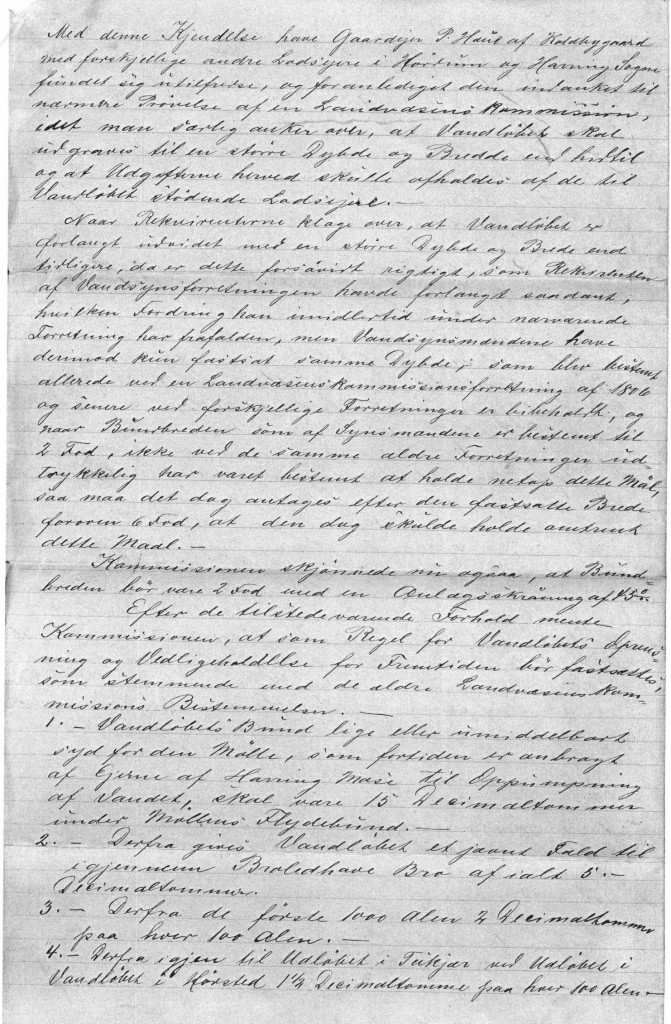 Med denne Kjendelse have Gaardejer P. Haul af Koldbygaard
med forskjellige andre Lodsejere i Hørdum og Harring Sogne
fundet sig utilfredse, og foranlediget den indanket til
nærmere Prøvelse af en Landvæsens Kommission,
idet man særlig anker over, at Vandløbet skal
udgraves til en større Dybde og Bredde end hidtil
og at Udgifterne herved skulle afholdes af de til
Vandløbet stødende Lodsejere. —
Naar Rekvirenterne klage over, at Vandløbet er
forlangt udvidet med en større Dybde og Brede end
tidligere, da er dette forsåvidt rigtigt, som Rekvirenten
af Vandsynsforretningen havde forlangt saadant,
hvilken Fordring han imidlertid under nærværende
Forretning har frafalden, men Vandsynsmændene have
derimod kun fastsat samme Dybde, som blev bestemt
allerede ved en Landvæsenskommissionsforretning af 1806
og senere ved forskjellige Forretninger er bibeholdt, og
naar Bundbreden som af Synsmændene er bestemt til
2 Fod, ikke ved de samme ældre Forretninger ud-
trykkelig har været bestemt at holde netop dette Mål,
saa maa det dog antages efter den fastsatte Brede
foroven 6 Fod, at den dog skulde holde omtrent
dette Maal. —
Kommissionen skjønnede nu ogsaa, at Bund-
breden bör være 2 Fod med en Anlægsskråning af 45°
Efter de tilstedeværende Forhold mente
Kommissionen, at som Regel for Vandløbets Oprens-
ning og Vedligeholdelse for Fremtiden bör fastsættes,
som stemmende med de ældre Landvæsens Kom-
missions Bestemmelser. —
1. — Vandløbets Bund lige eller umiddelbart
syd for den Mölle, som fortiden er anbragt
af Ejerne af Harring Mose til Oppumpning
af Vandet, skal være 15 Decimaltommer
under Møllens Flydebund. —
2. — Derfra gives Vandløbet et jævnt Fald til
igjennem Broledhave Bro af ialt 5. —
Decimaltommer.
3. — Derfra de første 1000 Alen 2 Decimaltommer
paa hver 100 Alen. —
4. — Derfra igjen til Udløbet i Tükjær ved Udløbet i
Vandløbet i Hørsted 1½ Decimaltomme paa hver 100 Alen —